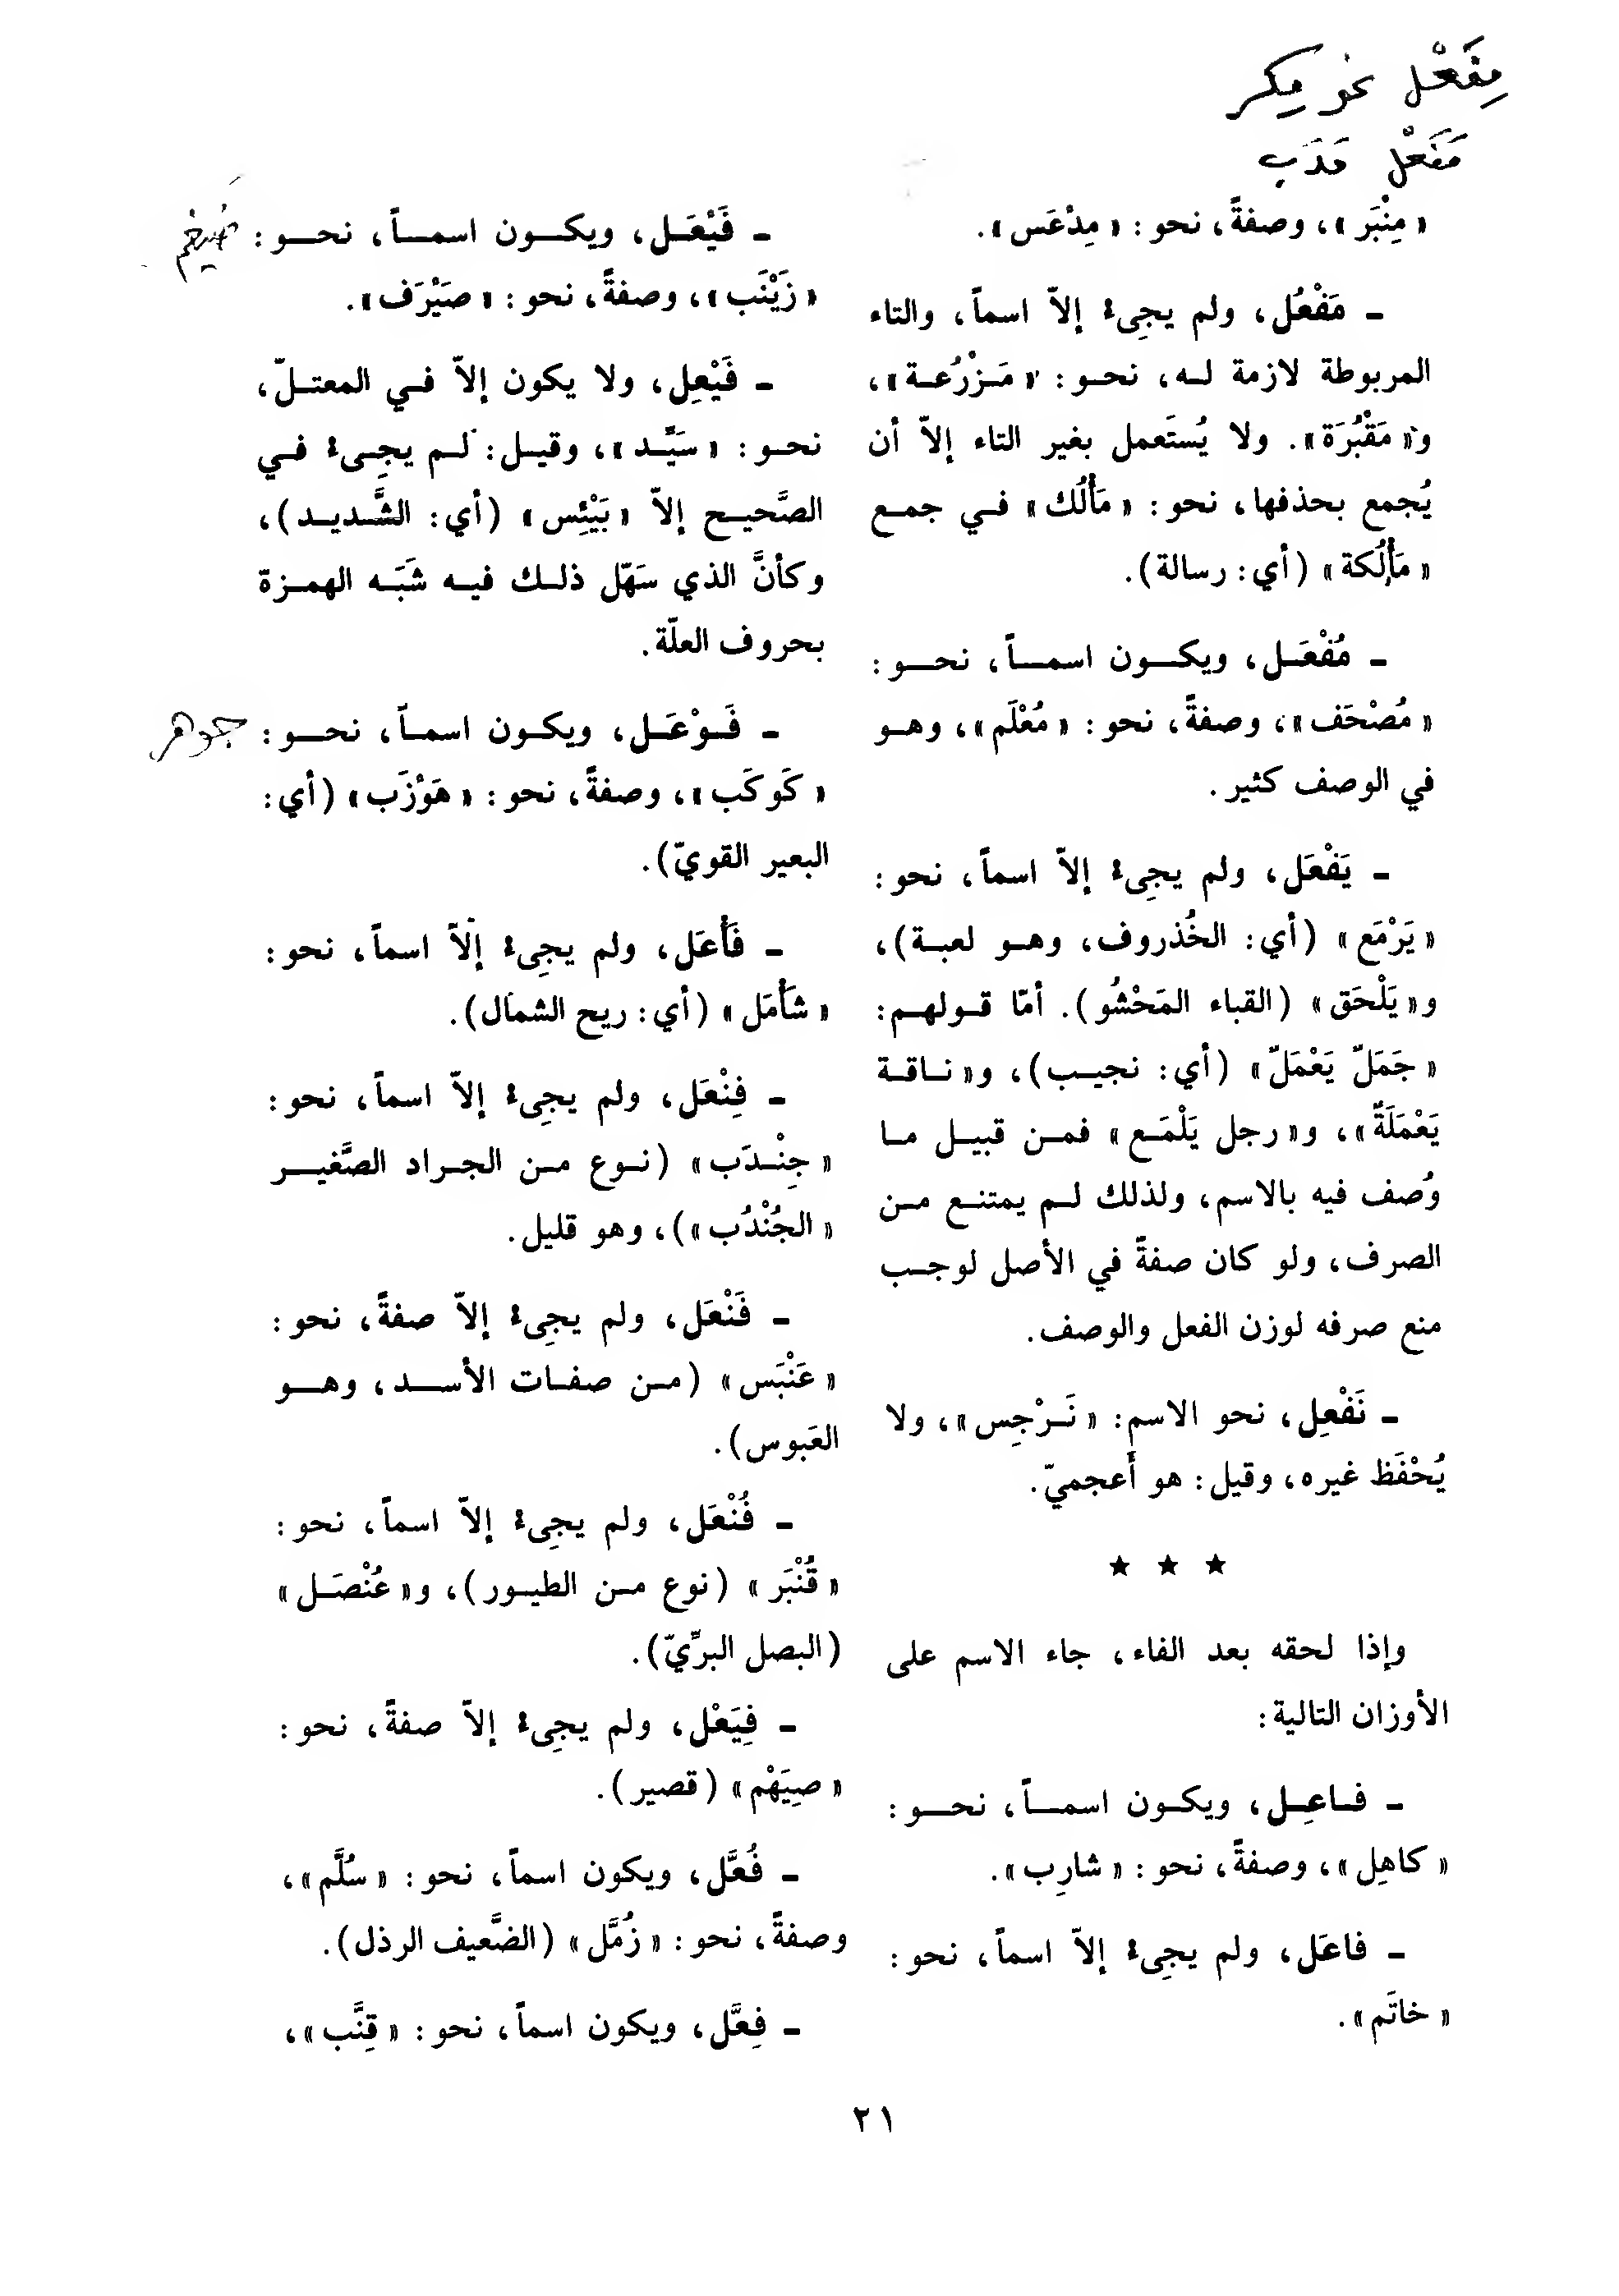 مِفَعْل نحو مِكر
مَفَعْل مَدَب
« مِنْبَر »، وصفةً، نحو: « مِدْعَس ».
ـ مَفْعُل، ولم يجِىء إلاّ اسماً، والتاء
المربوطة لازمة لـه، نحـو: « مَـزْرُعـة »،
و« مَقْبُرَة ». ولا يُستَعمل بغير التاء إلاّ أن
يُجمع بحذفها، نحو: « مَأْلُك » فـي جمـع
« مَأْلُكة » (أي: رسالة).
ـ مُفْعَـل، ويكـون اسمـاً، نحـو:
« مُصْحَف »، وصفةً، نحو: « مُعْلَم »، وهـو
في الوصف كثير.
ـ يَفْعَل، ولم يجِىء إلاّ اسماً، نحو:
« يَرْمَع » (أي: الخُذروف، وهـو لعبـة)،
و« يَلْحَق » (القباء المَحْشُو). أمّا قـولهـم:
« جَمَلٌ يَعْمَلٌ » (أي: نجيـب)، و« نـاقـة
يَعْمَلَةٌ »، و« رجل يَلْمَـع » فمـن قبيـل مـا
وُصف فيه بالاسم، ولذلك لـم يمتنـع مـن
الصرف، ولو كان صفةً في الأصل لوجـب
منع صرفه لوزن الفعل والوصف.
ـ نَفْعِل، نحو الاسم: « نَـرْجِس »، ولا
يُحْفَظ غيره، وقيل: هو أَعجميّ.
★ ★ ★
وإذا لحقه بعد الفاء، جاء الاسم على
الأوزان التالية:
ـ فـاعِـل، ويكـون اسمـاً، نحـو:
« كاهِل »، وصفةً، نحو: « شارِب ».
ـ فاعَل، ولم يجِىء إلاّ اسماً، نحو:
« خاتَم ».
ـ فَيْعَـل، ويكـون اسمـاً، نحـو:
« زَيْنَب »، وصفةً، نحو: « صَيْرَف ».
ـ فَيْعِل، ولا يكون إلاّ فـي المعتـلّ،
نحـو: « سَيِّـد »، وقيـل: لـم يجِـىء فـي
الصَّحيـح إلاّ « بَيْئِس » (أي: الشَّديـد)،
وكأنَّ الذي سَهّل ذلـك فيـه شَبَـه الهمـزة
بحروف العلّة.
ـ فَـوْعَـل، ويكـون اسمـاً، نحـو: جوهر
« كَوكَب »، وصفةً، نحو: « هَوْزَب » (أي:
البعير القويّ).
ـ فَأْعَل، ولم يجِىء إلاّ اسماً، نحو:
« شَأْمَل » (أي: ريح الشمال).
ـ فِنْعَل، ولم يجِىء إلاّ اسماً، نحو:
« جِنْـدَب » (نـوع مـن الجـراد الصَّغيـر
« الجُنْدُب »)، وهو قليل.
ـ فَنْعَل، ولم يجِىء إلاّ صفةً، نحو:
« عَنْبَس » (مـن صفـات الأسـد، وهـو
العَبوس).
ـ فُنْعَل، ولم يجِىء إلاّ اسماً، نحو:
« قُنْبَر » (نوع مـن الطيـور)، و« عُنْصَـل »
(البصل البرِّيّ).
ـ فِيَعْل، ولم يجِىء إلاّ صفةً، نحو:
« صِيَهْم » (قصير).
ـ فُعَّل، ويكون اسماً، نحو: « سُلَّم »،
وصفةً، نحو: « زُمَّل » (الضَّعيف الرذل).
ـ فِعَّل، ويكون اسماً، نحو: « قِنَّب »،
٢١